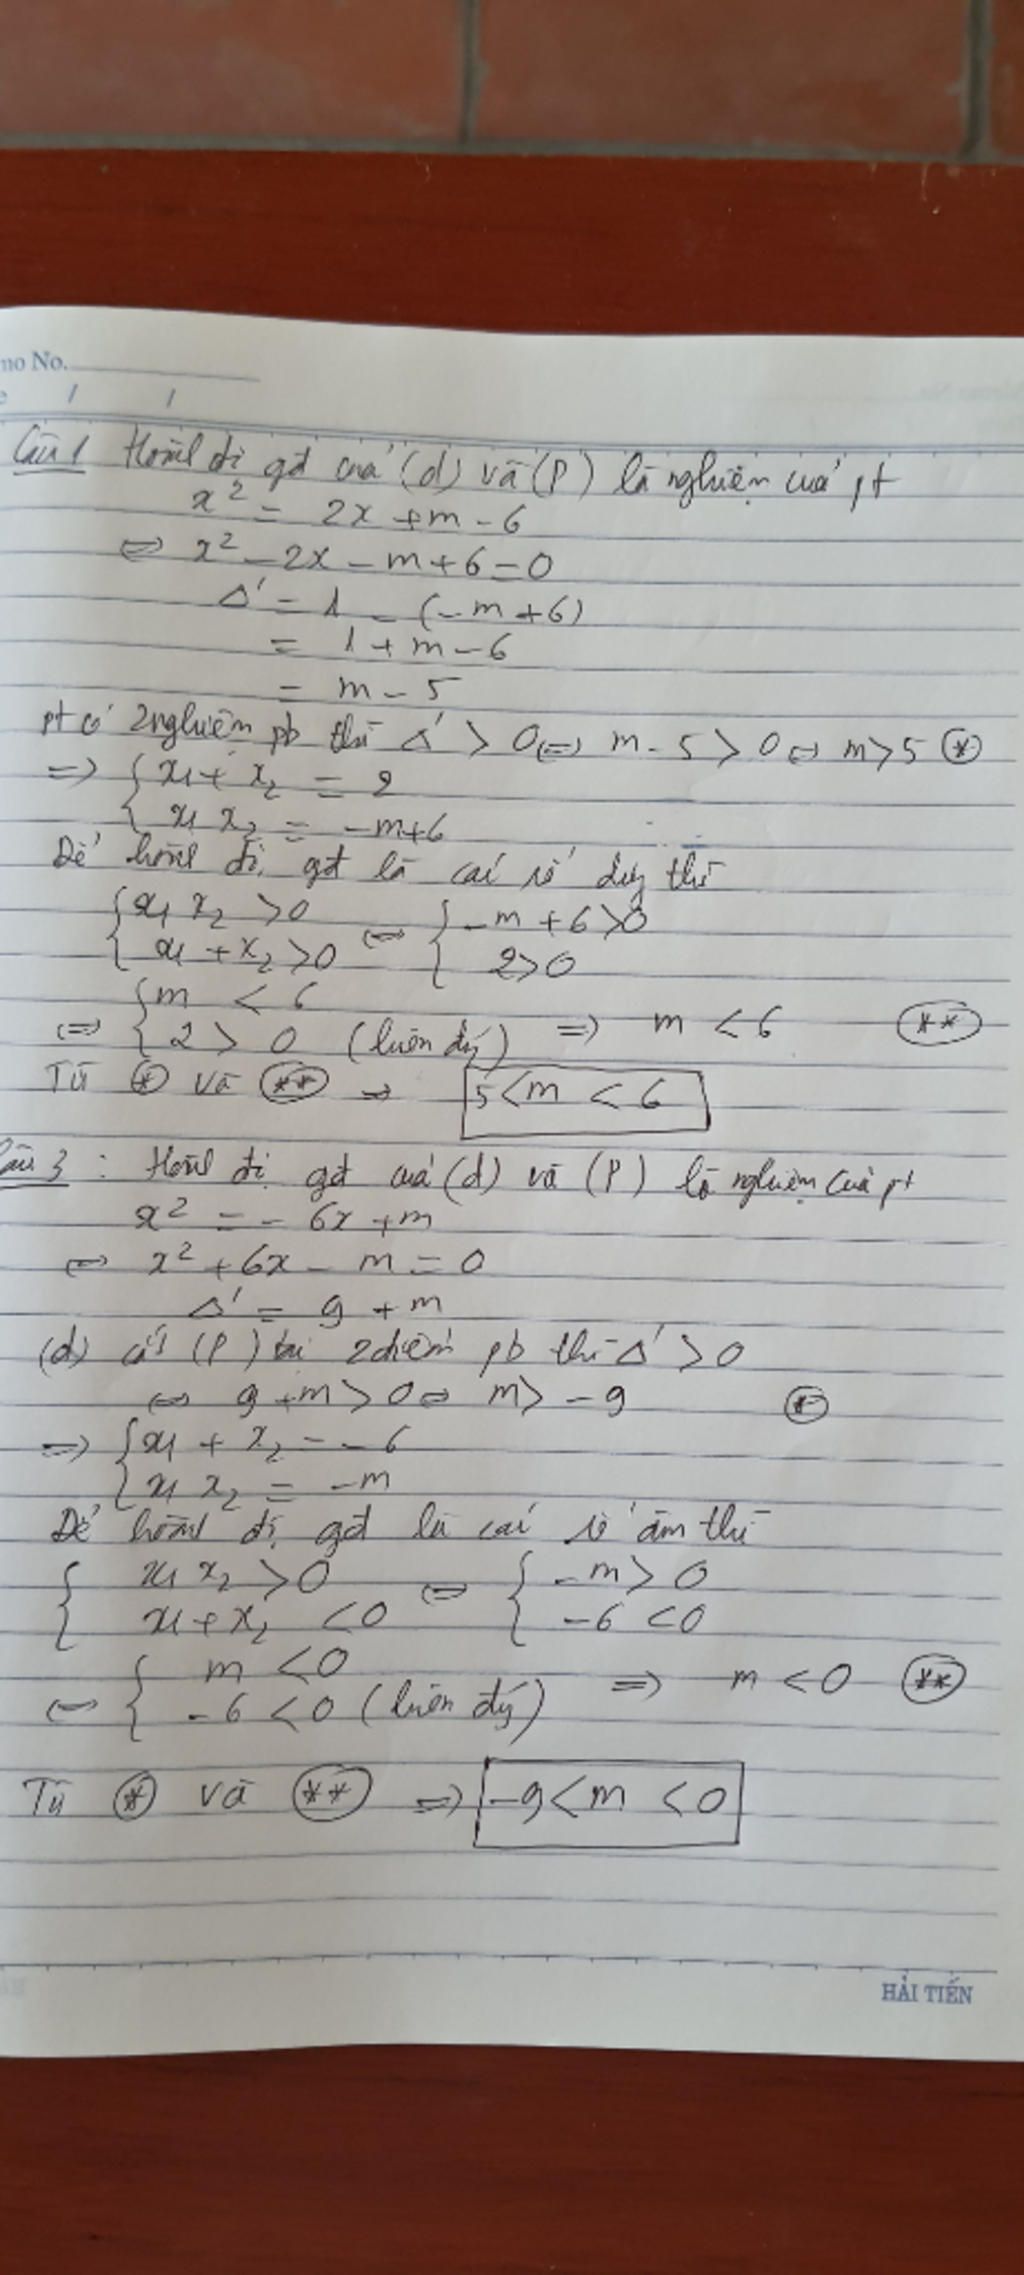 mo No.
e / /
Câu 1 Hoành độ gđ của (d) và (P) là nghiệm của pt
x² = 2x + m - 6
⇔ x² - 2x - m + 6 = 0
Δ' = 1 - (-m + 6)
= 1 + m - 6
= m - 5
pt có 2 nghiệm pb thì Δ' > 0 ⇔ m - 5 > 0 ⇔ m > 5 (*)
⇒ { x₁ + x₂ = 2
x₁ x₂ = -m+6
Để hoành độ gđ là các số dương thì
{ x₁ x₂ > 0 ⇔ { -m + 6 > 0
x₁ + x₂ > 0 2 > 0
⇔ { m < 6
2 > 0 (luôn đúng) ⇒ m < 6 (**)
Từ (*) và (**) ⇒ 5 < m < 6
Câu 3 : Hoành độ gđ của (d) và (P) là nghiệm của pt
x² = - 6x + m
⇔ x² + 6x - m = 0
Δ' = 9 + m
(d) cắt (P) tại 2 điểm pb thì Δ' > 0
⇔ 9 + m > 0 ⇔ m > -9 (*)
⇒ { x₁ + x₂ = -6
x₁ x₂ = -m
Để hoành độ gđ là các số âm thì
{ x₁ x₂ > 0 ⇔ { -m > 0
x₁ + x₂ < 0 -6 < 0
⇔ { m < 0
-6 < 0 (luôn đúng) ⇒ m < 0 (**)
Từ (*) và (**) ⇒ -9 < m < 0
HẢI TIẾN